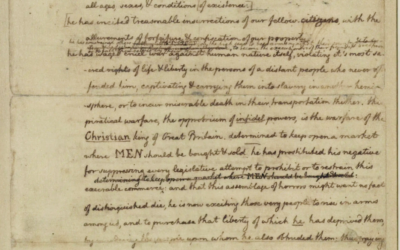 all ages, sexes, & conditions of existence.
[he has incited treasonable insurrections of our fellow citizens with the
allurements of forfeiture & confiscation of our property.
he has waged cruel war against human nature itself, violating it's most sa-
-cred rights of life & liberty in the persons of a distant people who never of-
fended him, captivating & carrying them into slavery in another hemi-
sphere, or to incur miserable death in their transportation thither. this
piratical warfare, the opprobrium of infidel powers, is the warfare of the
Christian king of Great Britain. determined to keep open a market
where MEN should be bought & sold, he has prostituted his negative
for suppressing every legislative attempt to prohibit or to restrain this
determining to keep open a market where MEN should be bought & sold
execrable commerce: and that this assemblage of horrors might want no fact
of distinguished die, he is now exciting those very people to rise in arms
among us, and to purchase that liberty of which he has deprived them,
upon whom he also obtruded them: thus paying